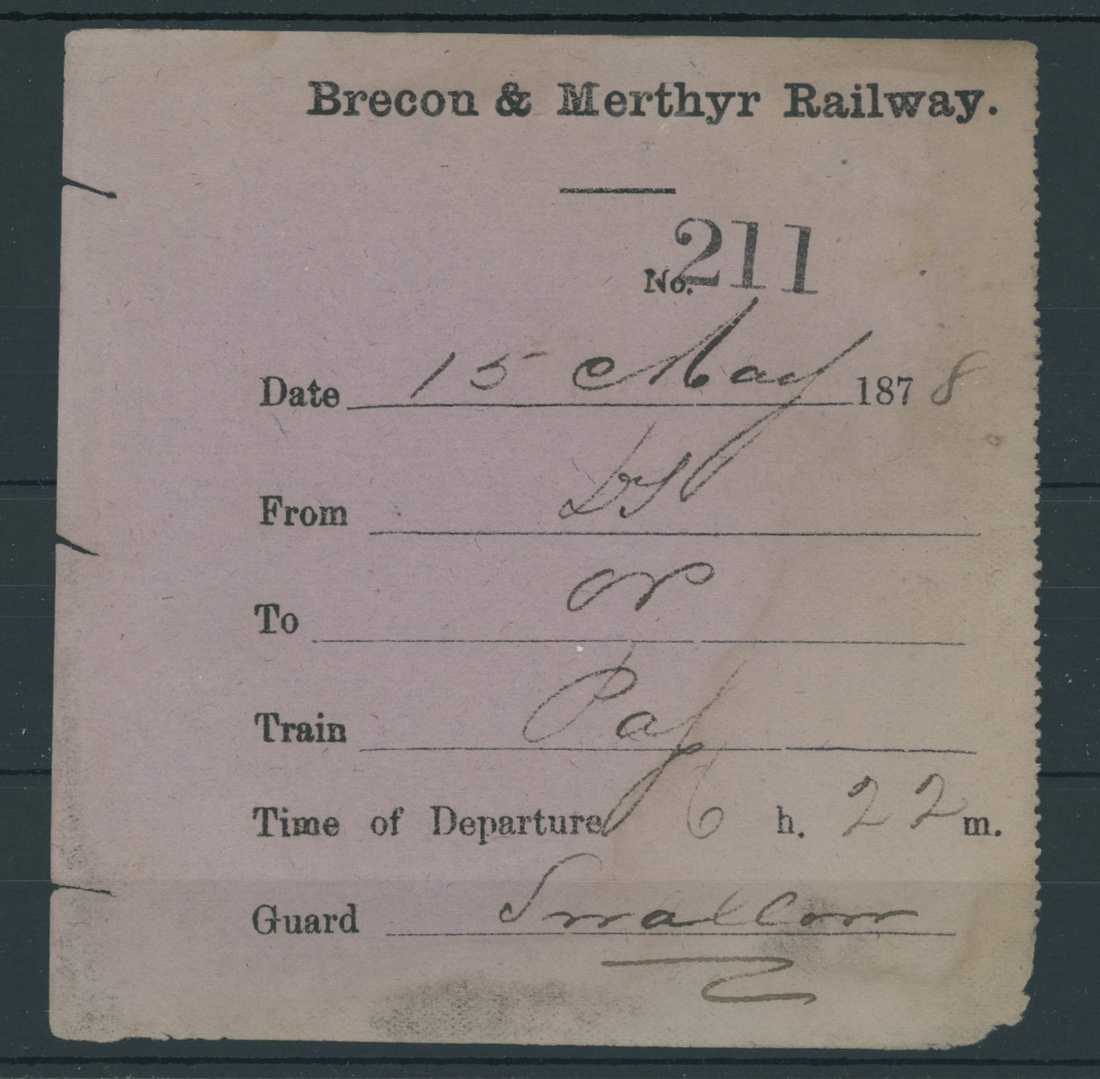 Brecon & Merthyr Railway.
No. 211
Date 15 May 1878
From
To
Train Pass
Time of Departure 6 h. 22 m.
Guard Swallow